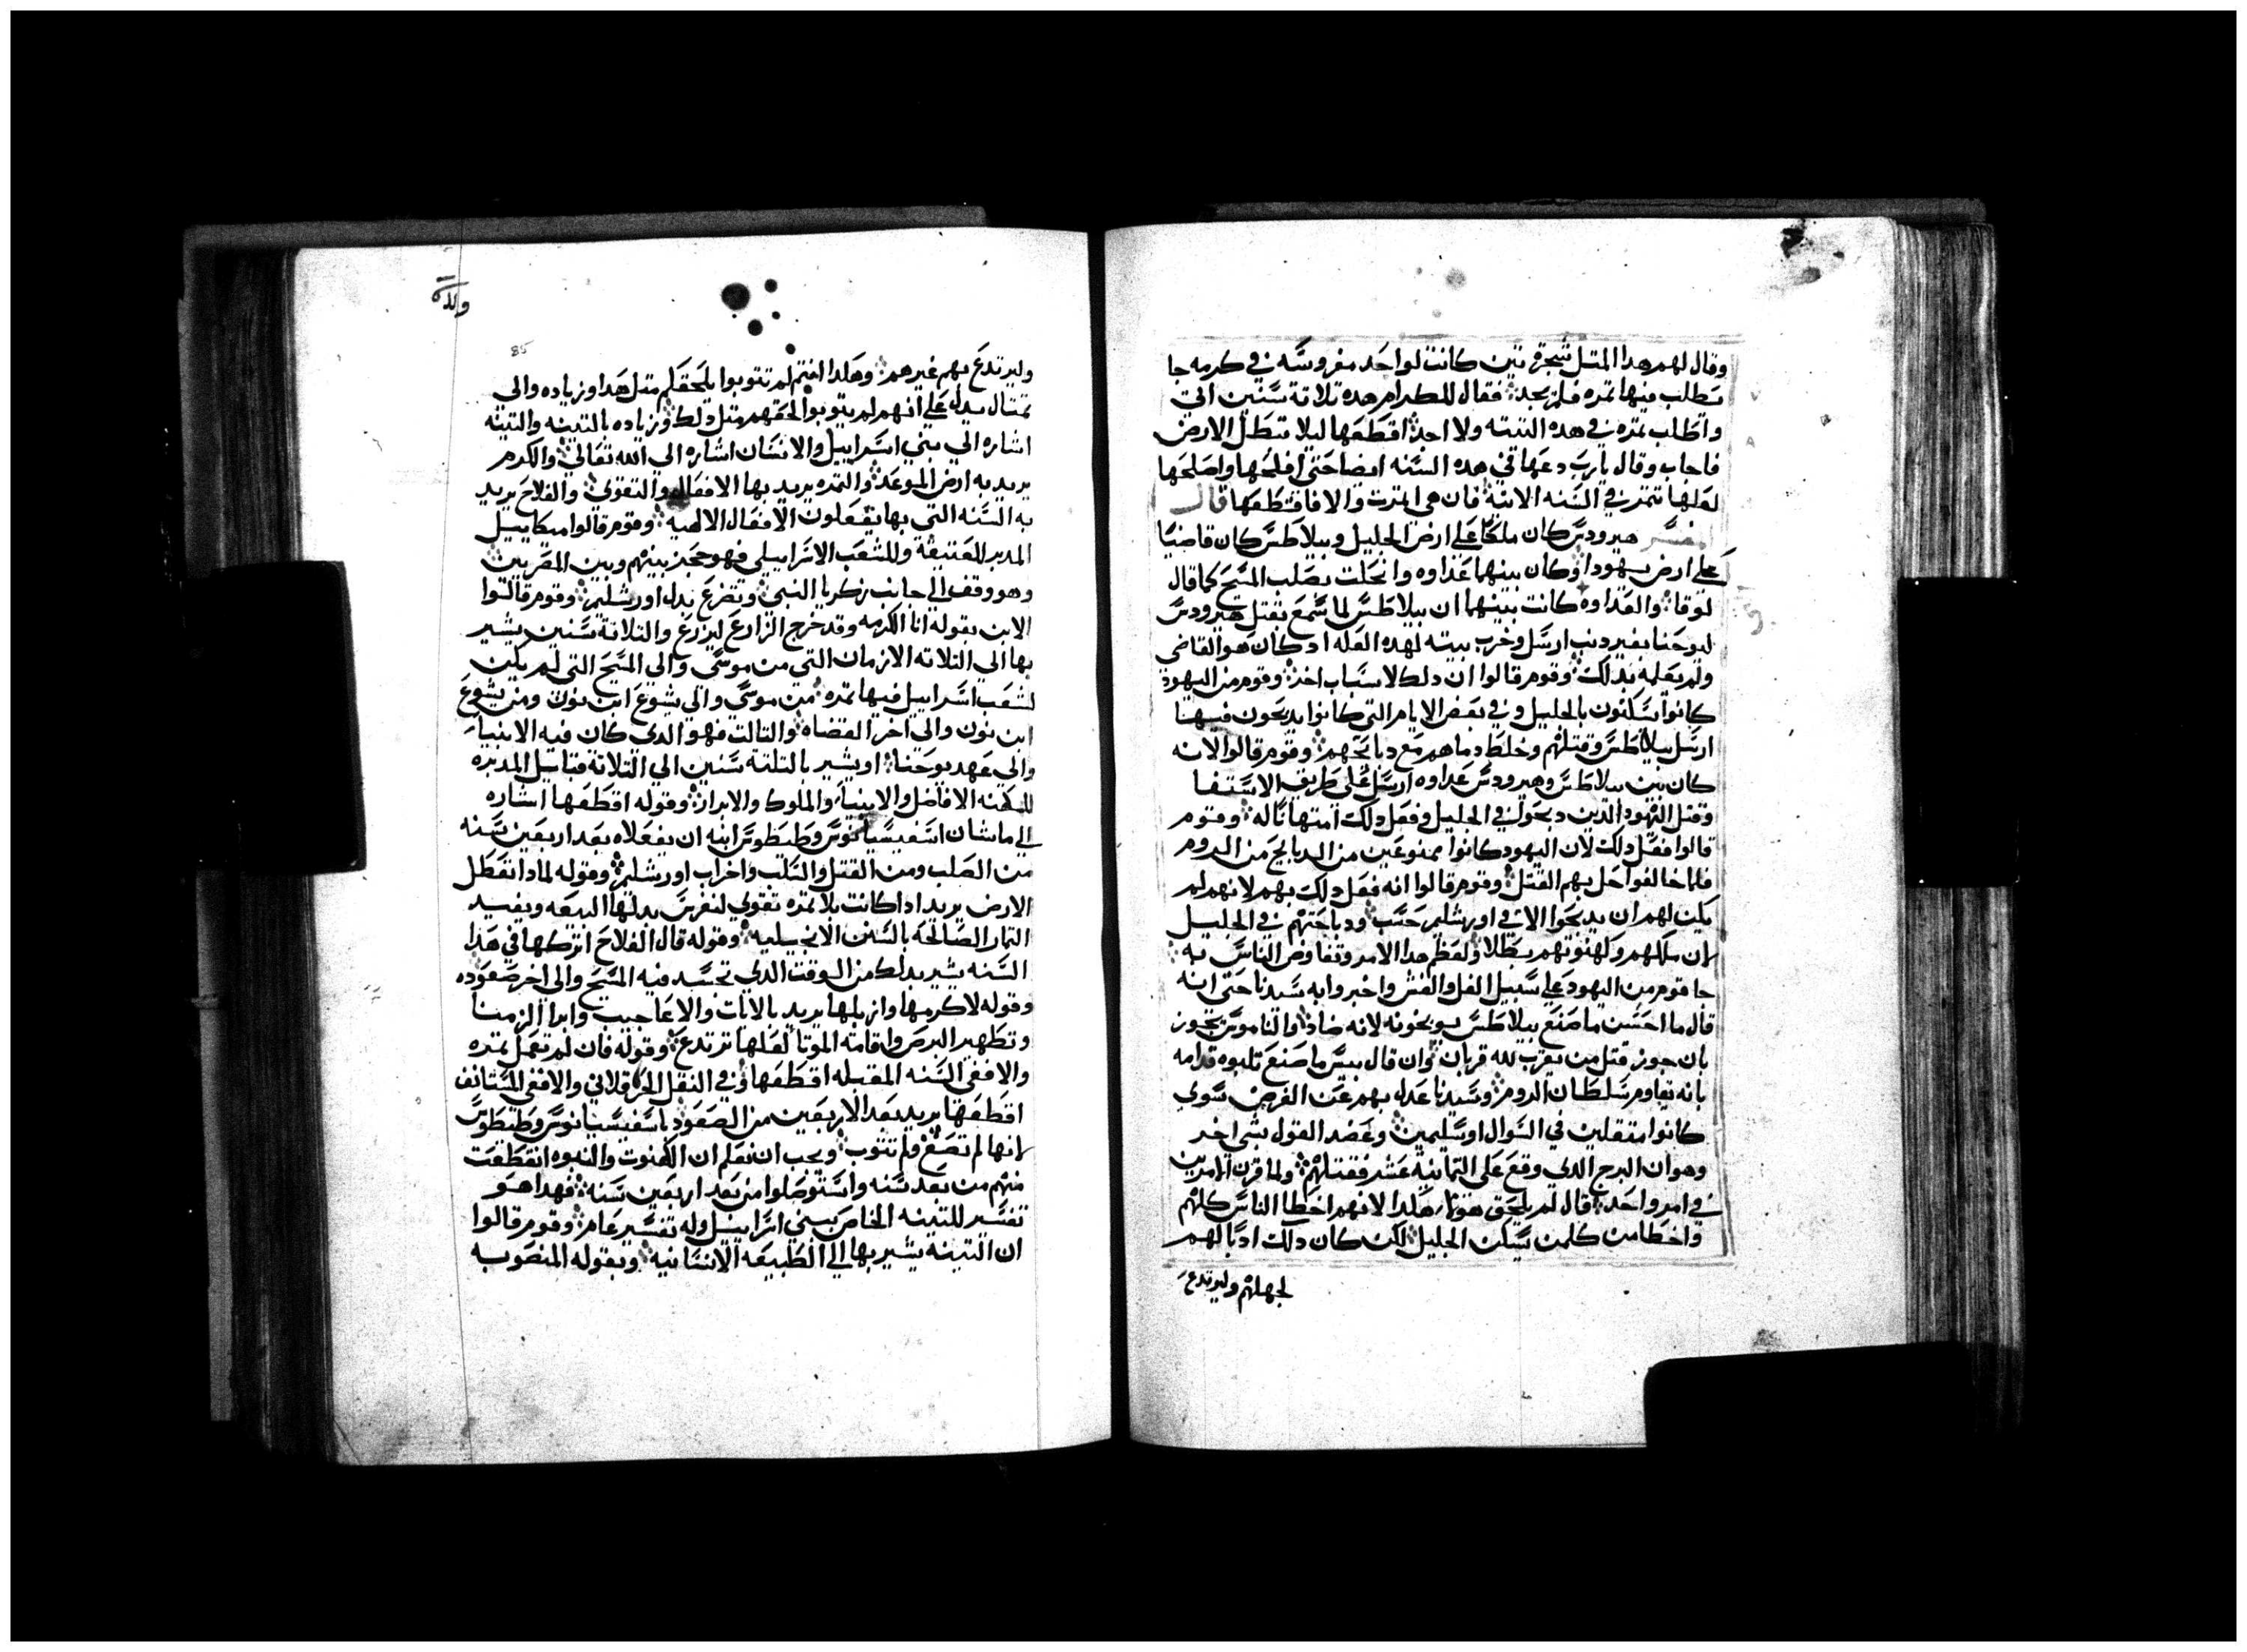 وقال لهم هدا المتل شجرة تين كانت لواحد مغروسه في كرمه جا
تطلب فيها تمره فلم يجد فقال للكرام هده تلاتة سنين اتي
واطلب تمره في هده التينه ولا اجد اقطعها ليلا تبطل الارض
فاجاب وقال يارب دعها في هده السنه ايضا حتى افلحها واصلحها
لعلها تتمر في السنه الاتية فان هي اتمرت والا فاقتطعها قال
المفسر هيرودس كان ملكا على ارض الجليل وبيلاطس كان قاضيا
على ارض يهودا وكان بينهما عداوه وانحلت بصلب المسيح كما قال
لوقا والعداوه كانت بينهما ان بيلاطس لما سمع بقتل هيرودس
ليوحنا بغير دنب ارسل وخرب بيته لهده العله اد كان هو القاضي
ولم يعلمه بدلك وقوم قالوا ان دلك لاسباب اخر وقوم من اليهود
كانوا يسكنون بالجليل وفي بعض الايام التي كانوا يدبحون فيها
ارسل بيلاطس وقتلهم وخلط دماهم مع دبايحهم وقوم قالوا لانه
كان بين بيلاطس وهيرودس عداوه ارسل على طريق الاستفا
وقتل اليهود الدين دبحوا في الجليل وفعل دلك امتهانا له وقوم
قالوا فعل دلك لان اليهود كانوا ممنوعين من الدبايح من الروم
فلما خالفوا حل بهم القتل وقوم قالوا انه فعل دلك بهم لانهم لم
يكن لهم ان يدبحوا الا في اورشليم حسب ودباحتهم في الجليل
لان ملكهم وكهنوتهم بطلا ولعظم هدا الامر وتفاوض الناس به
جا قوم من اليهود على سبيل الغل والغش واخبروا به سيدنا حتى انه
قال ما احسن ما صنع بيلاطس يوبخونه لانه ضادد الناموس بتجوز
بان جوز قتل من يقرب لله قربان وان قال بيس ما صنع تلبوه قدامه
بانه يقاوم سلطان الروم وسيدنا عدل بهم عن الغرض سوي
كانوا متقلين في السوال او سليمين وعضد القول بشي اخر
وهو ان البرج الدي وقع على التمانية عشر فقتلهم ولما قرن الامرين
في امر واحد قال لم يلحق هولا هكدا لانهم اخطا الناس كلهم
واخطا من كلمن يسكن الجليل لكن كان دلك ادبا لهم
لجهلهم وليرتدع
والده
85
وليرتدع بهم غيرهم وهكدا انتم لم تتوبوا يلحقكم متل هدا وزياده والى
تمتال يدل على انهم لم يتوبوا لحقهم متل دلك وزياده بالتينه والتينه
اشاره الي بني اسراييل والانسان اشاره الي الله تعالى والكرم
يريد به ارض الموعد والتمره يريد بها الافعال والتقوي والفلاح يريد
به السنه التي بها يفعلون الافعال الالهيه وقوم قالوا ميكاييل
المدبر للعتيقة وللشعب الاسراييلي فهو حجز بينهم وبين المصريين
وهو وقف الي جانب زكريا النبي وتضرع بدل اورشليم وقوم قالوا
الابن بقوله انا الكرمه وقد خرج الزارع ليزرع والتلاتة سنين يشير
بها الى التلاته الازمان التي من موسى والي المسيح التي لم يكن
لشعب اسراييل فيها تمره من موسى والي يشوع ابن نون ومن يشوع
ابن نون والي اخر القضاه والتالت فهو الدي كان فيه الانبيا
والى عهد يوحنا او يشير بالتلتة سنين الي التلاتة قبايل المدبره
للكهنه الافاضل والانبيا والملوك والابرار وقوله اقطعها اشاره
الي ماشان اسفيسيانوس وطيطوس ابنه ان يفعلاه بعد اربعين سنه
من الصلب ومن القتل والسلب واخراب اورشليم وقوله لمادا تعطل
الارض يريد ادا كانت بلا تمره تقوي لنغرس بدلها البيعه ويفسيد
التمار الصالحه بالسنن الانجيليه وقوله قال الفلاح اتركها في هدا
السنه يشير بدلك من الوقت الدي تجسد فيه المسيح والى اخر صعوده
وقوله لاكرمها وازبلها يريد بالايات والاعاجيب وابرا الزمنا
وتطهير البرص واقامه الموتا لعلها ترتدع وقوله فان لم تعمل تمره
والا ففي السنه المقبله اقطعها وفي النقل الحرقلاني والا ففي المستانف
اقطعها يريد بعد الاربعين من الصعود باسفيسيانوس وطيطوس
لانها لم تصغ ولم تتوب ويجب ان نعلم ان الكهنوت والنبوه انقطعت
منهم من بعد سنه واستوصلوا من بعد اربعين سنه فهدا هو
تفسير للتينه الخاص ببني اسراييل وله تفسير عام وقوم قالوا
ان التينة يشير بها الي الطبيعه الانسانيه وبقوله المنصوب